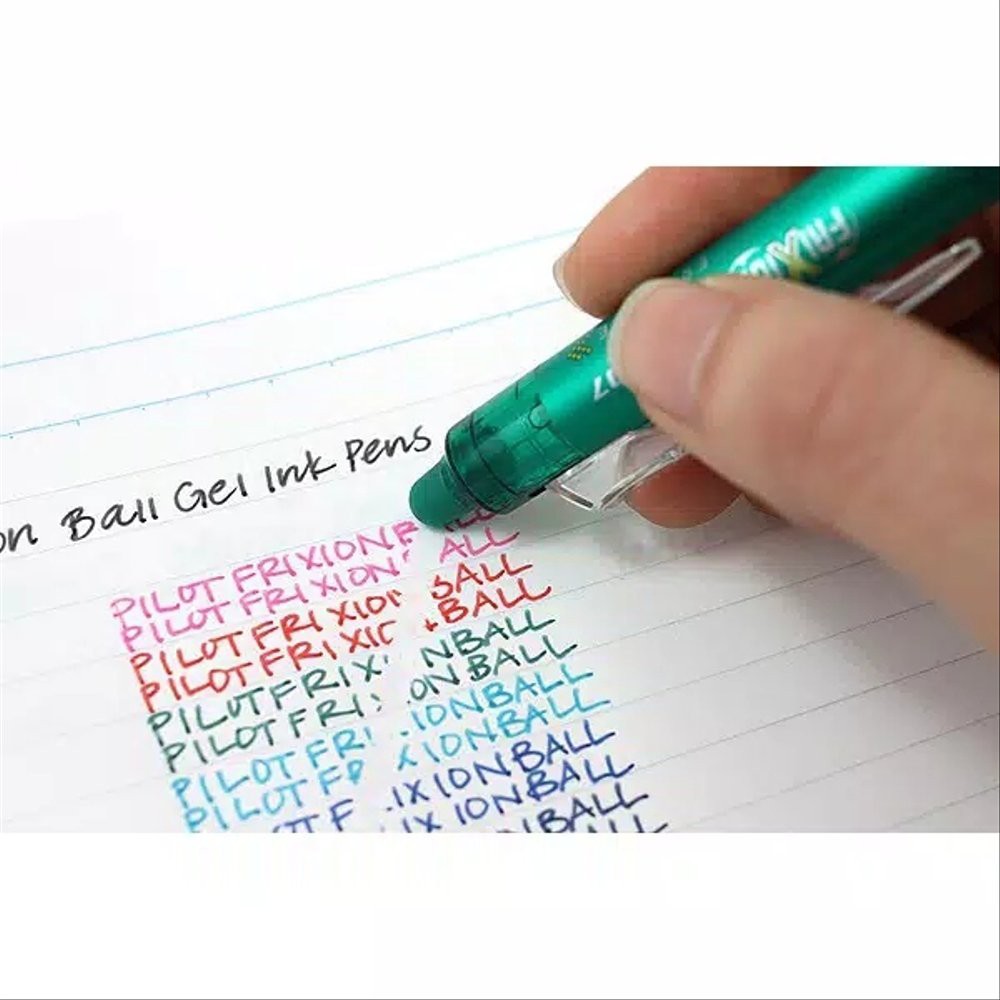 FRIXION
07
on Ball Gel Ink Pens
PILOT FRIXION ALL
PILOT FRIXION ALL
PILOT FRIXIO BALL
PILOT FRIXIO BALL
PILOT FRIX NBALL
PILOT FRI ONBALL
PILOT FRI IONBALL
PILOT F XIONBALL
OT F IXIONBALL
IXIONBALL
NBALL